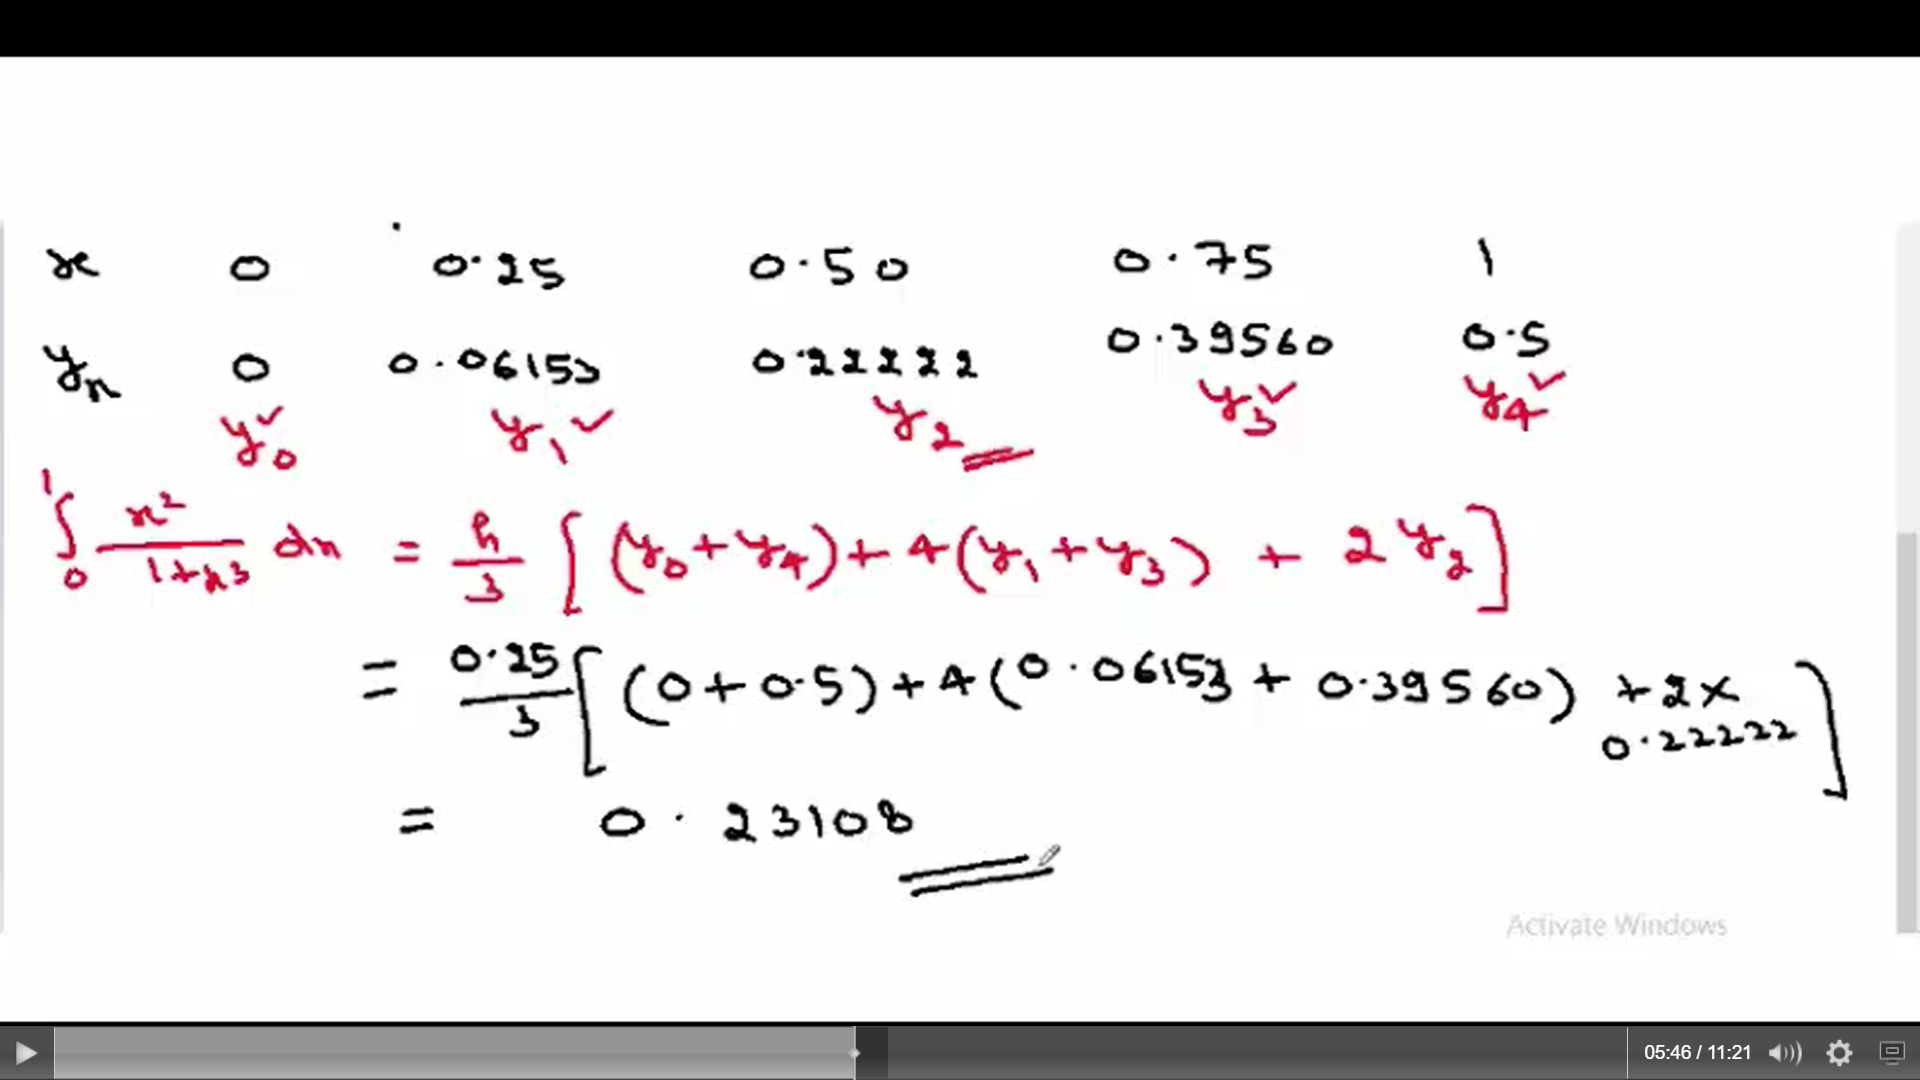 x 0 0.25 0.50 0.75 1
yn 0 0.06153 0.22222 0.39560 0.5
y0 y1 y2 y3 y4
∫₀¹ x²/1+x³ dx = h/3 [(y0+y4)+4(y1+y3) + 2y2]
= 0.25/3 [(0+0.5)+4(0.06153+0.39560) +2× 0.22222]
= 0.23108
Activate Windows
05:46 / 11:21